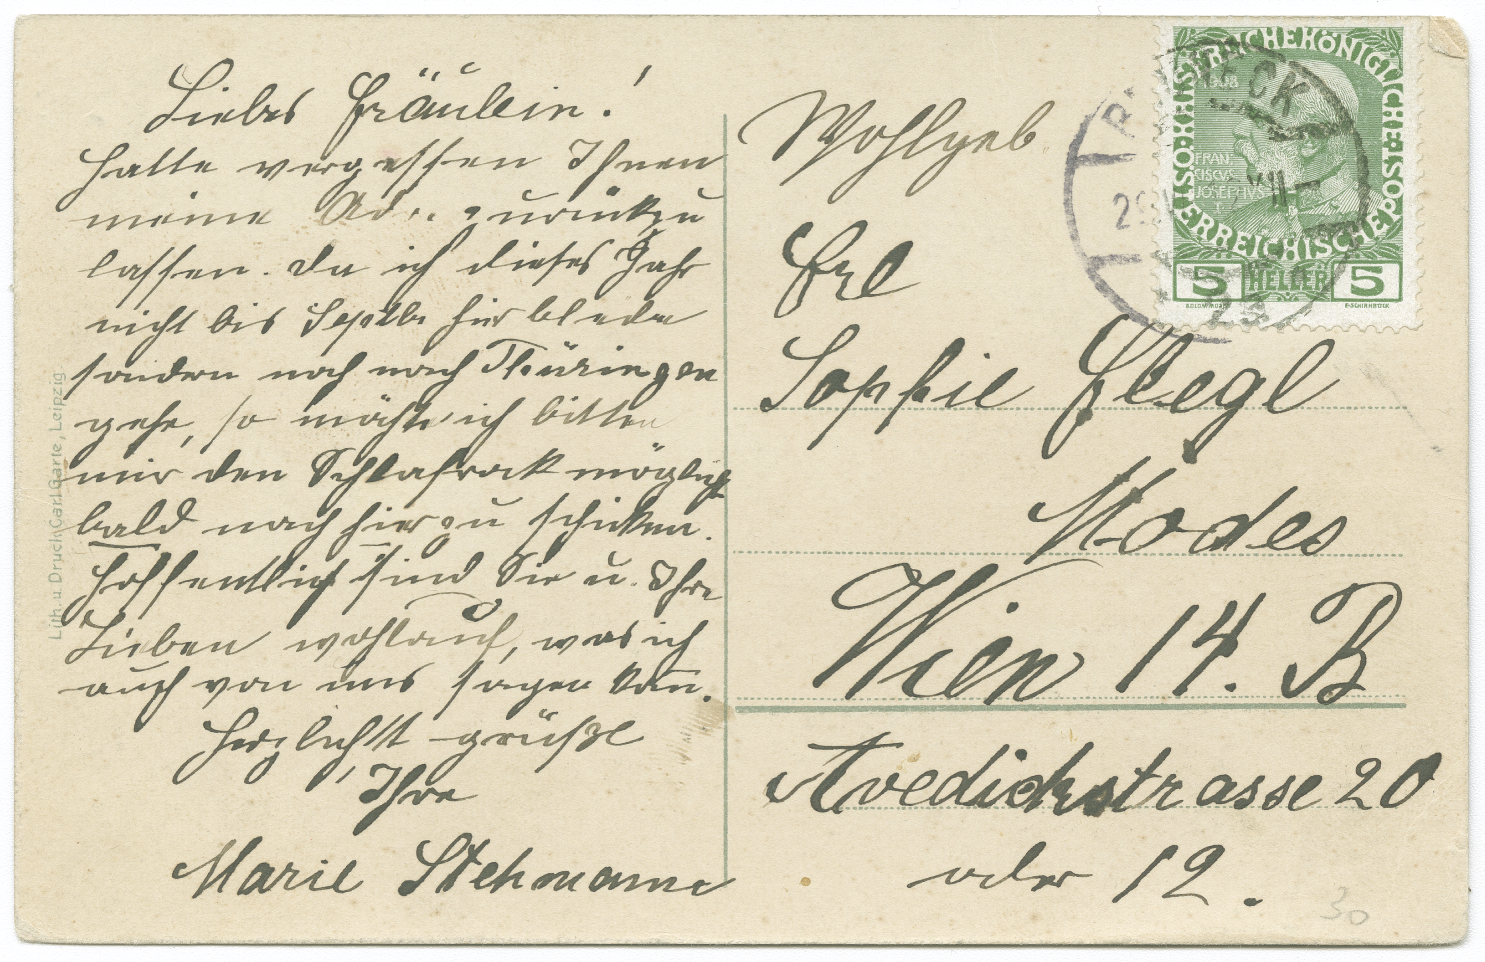 Liebes Fräulein!
Hatte vergessen Ihnen
meine Adr. zurückzu
lassen. Da ich dieses Jahr
nicht bis Septbr hier bleibe
sondern noch nach Thüringen
gehe, so möchte ich bitten
mir den Schlafrock möglichst
bald nach hier zu schicken.
Hoffentlich sind Sie u. Ihre
Lieben wohlauf, was ich
auch von uns sagen kann.
Herzlichst grüßt
Ihre
Marie Stehmann
Wohlgeb
Frl
Sophie Flegl
Modes
Wien 14. B
Avedickstrasse 20
oder 12.
30
KAISERLICHE KÖNIGLICHE ÖSTERREICHISCHE POST
1908
FRAN
CISCVS
JOSEPHVS I
5 HELLER 5
KOLOM. MOSER
F. SCHIRNBÖCK
Lith. u. Druck Carl Garte, Leipzig